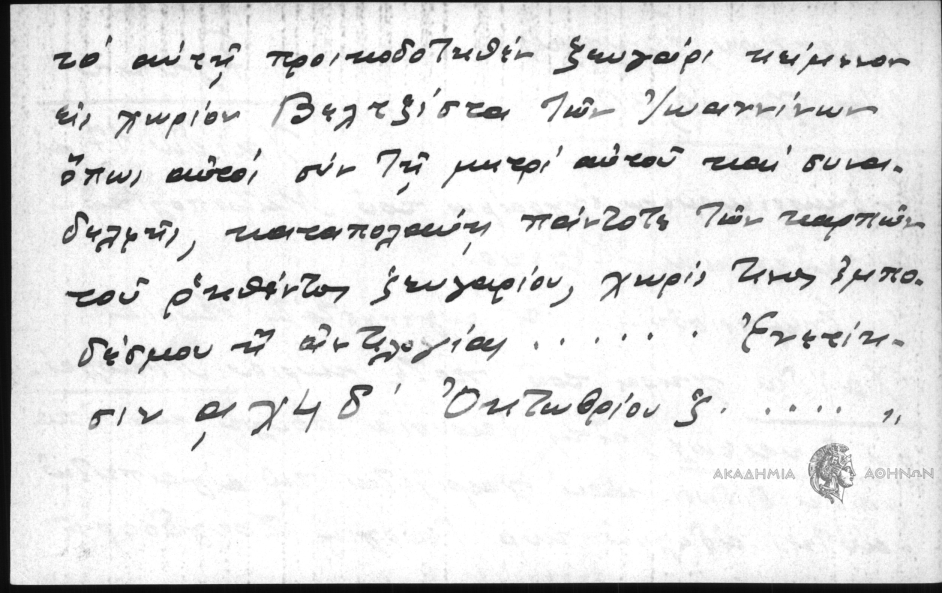 τό αὐτῇ προικοδοτηθέν ζευγάρι κείμενον
εἰς χωρίον Βελτζίστα τῶν Ἰωαννίνων
ὅπως αὐτός σύν τῇ μητρί αὐτοῦ καί συνα-
δελφῆς, καταπολαύῃ πάντοτε τῶν καρπῶν
τοῦ ῥηθέντος ζευγαρίου, χωρίς τινος ἐμπο-
δέσμου ἤ ἀντιλογίας . . . . . . Ἐνετίη-
σιν αχ4δ΄ Ὀκτωβρίου ζ. . . . . . „
ΑΚΑΔΗΜΙΑ ΑΘΗΝΩΝ